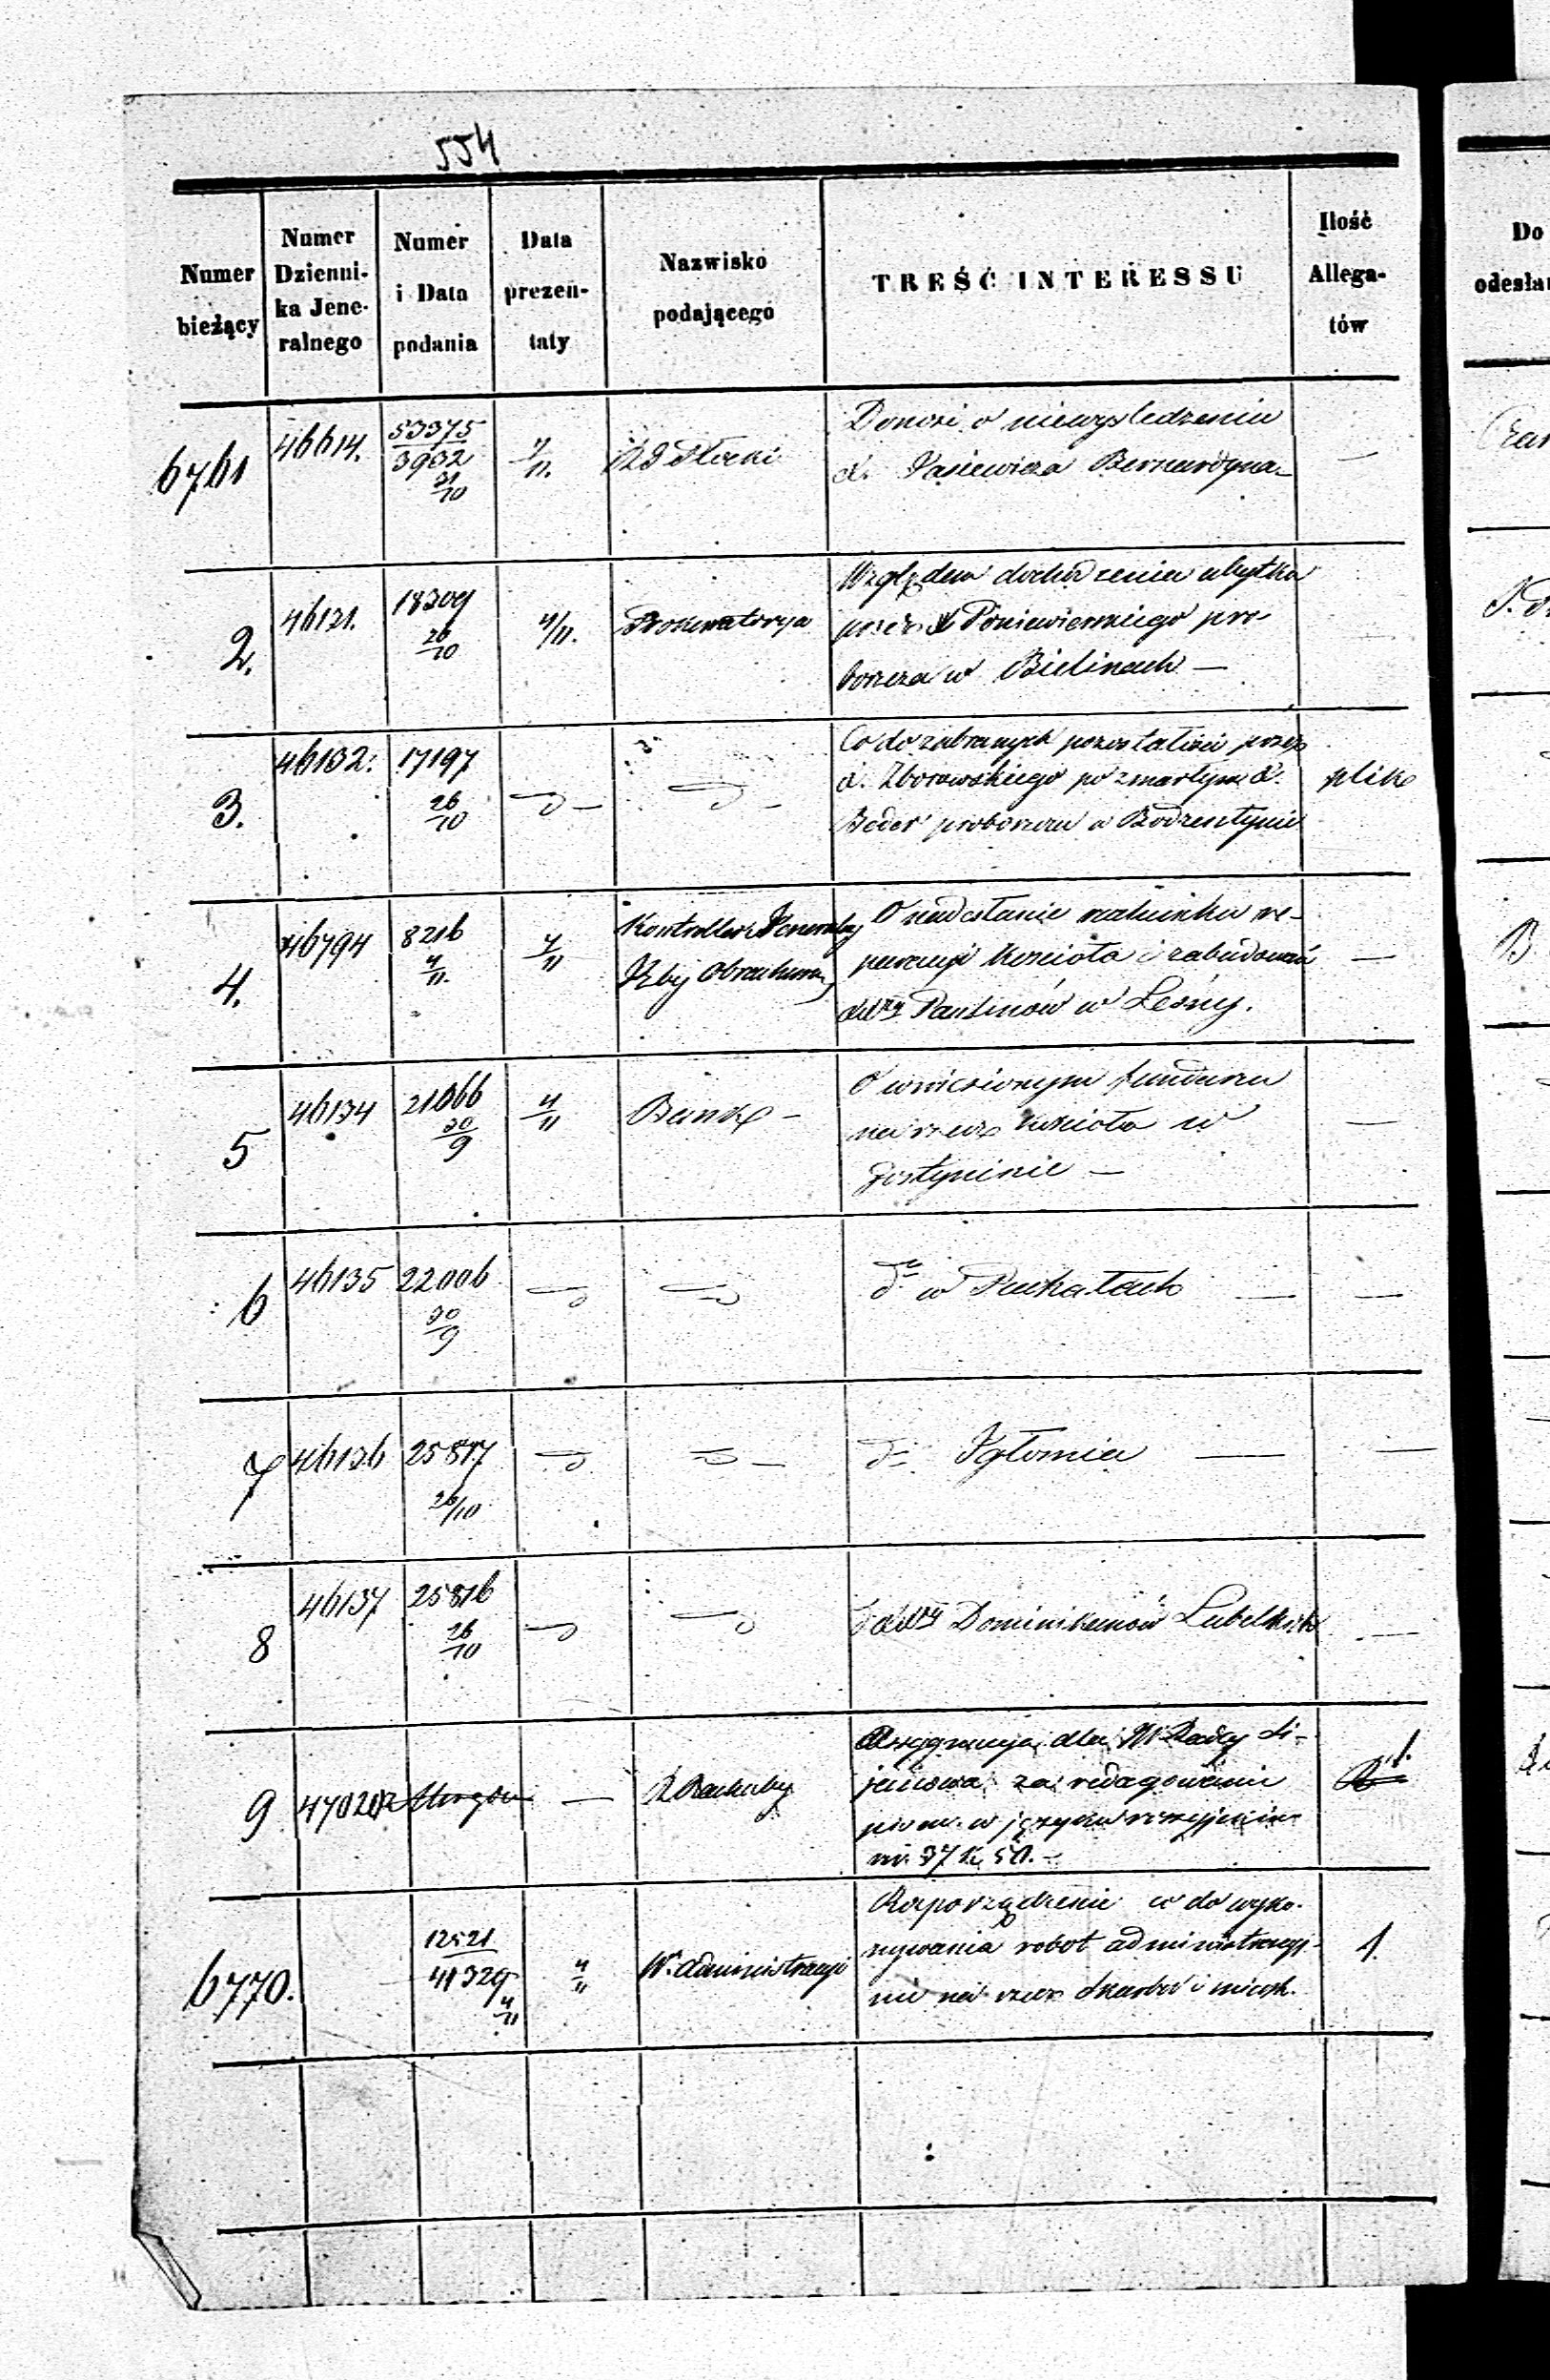 554
Numer bieżący
Numer Dzienni-ka Jene-ralnego
Numer i Data podania
Data prezen-taty
Nazwisko podającego
TREŚĆ INTERESSU
Ilość Allega-tów
Do
odesła
6761 46614. 53375 3932 31/10 4/11. Płocki —
Donosi o niewyśledzeniu
X. Bernardyna
2. 46121. 18309 26/10 4/11. Prokuratorya
Względem dochodzenia ubytku
przez X Poniewierskiego pro-
boszcza w Bielinach —
3. 46132. 17197 26/10 plik
Co do zabranych pozostałości przez
X. Zborowskiego po zmarłym X.
proboszczu w Bodzentynie
4. 46794 8216 4/11. 4/11 Kontroller Jeneralny
Izby Obrachun. —
O nadesłanie rachunku re-
peracyi Kościoła i zabudowań
Paulinów w Leśny.
5 46134 21066 30/9 4/11 Bank — —
O wniesionym funduszu
na rzecz Kościoła w
Gostyninie —
6 46135 22006 30/9
do w Puchałach — —
7 46136 25817 26/10
do Igłomia — —
8 46137 25816 26/10
Dominikanów Lubelskich —
9 47020 —
Assygnacya dla
za redagowanie
pism w języku rossyjskim
37 k 50. —
1.
6770. 12521 41329 4/11 4/11 W. Administracyi 1.
Rozporządzenie co do wyko-
nywania robot administracyj-
nie na rzecz Skarbu i miast.